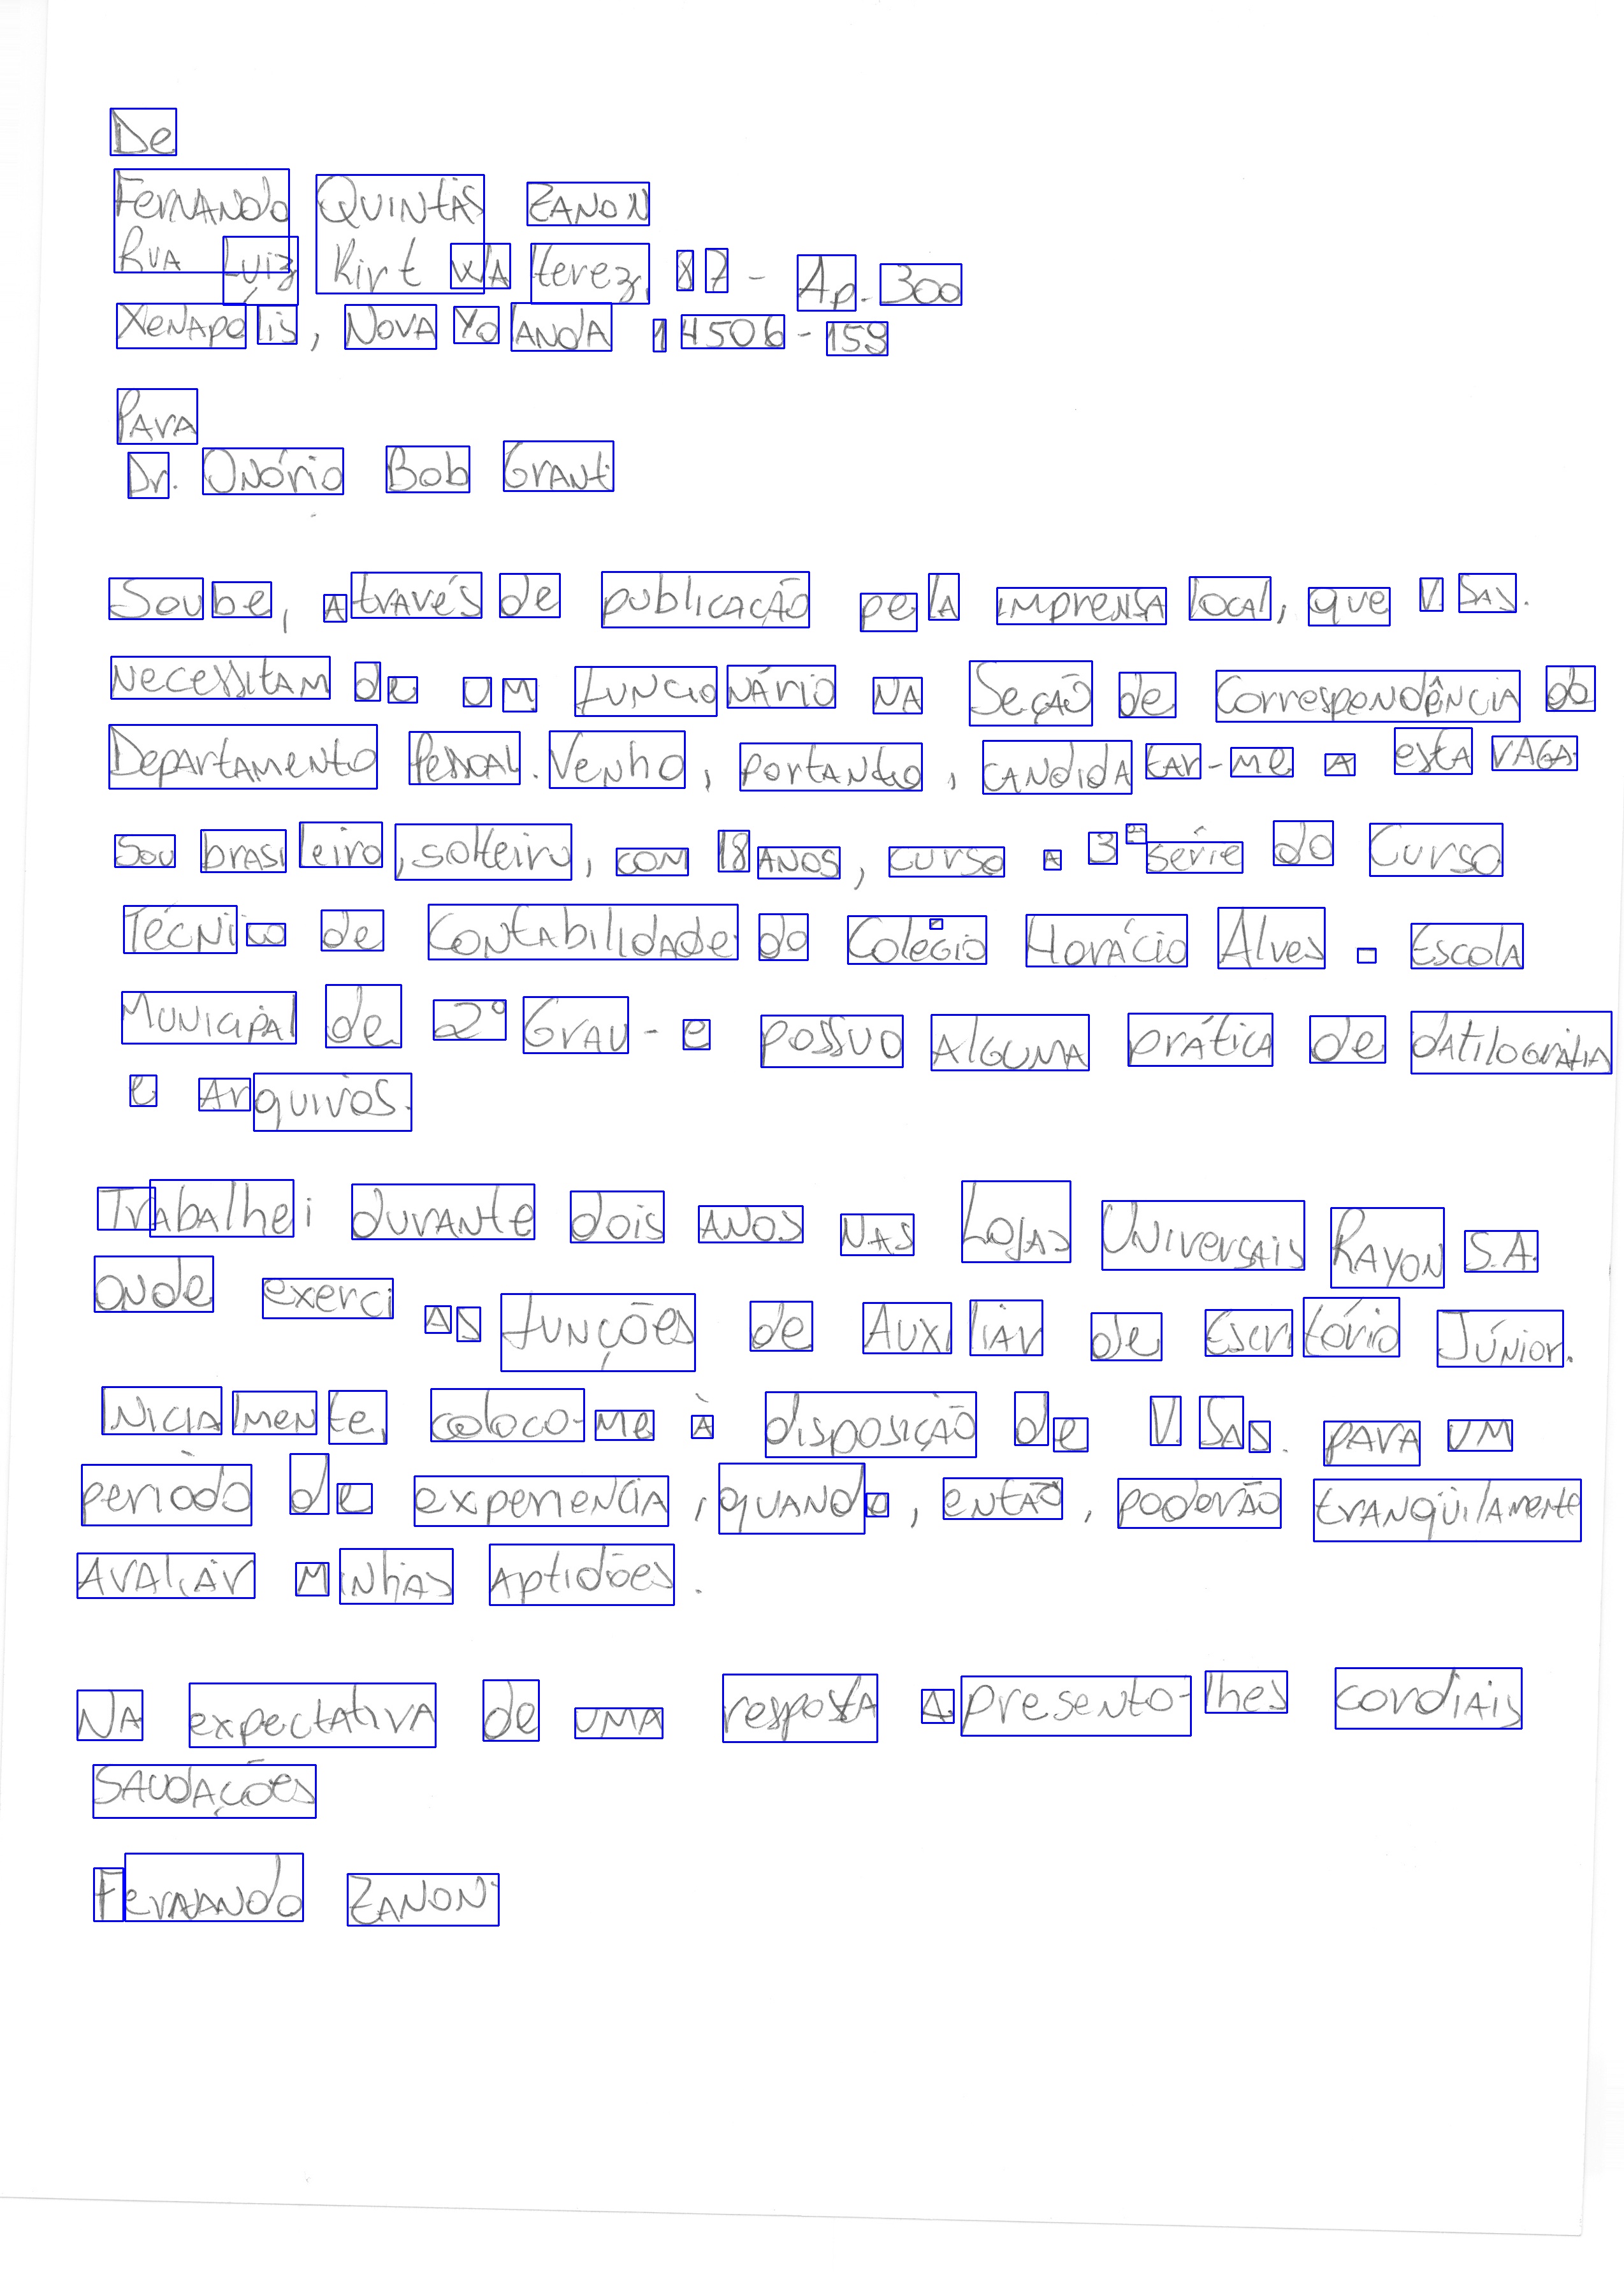 De
Fernando Quintas Zanon
Rua Luiz Kirt Waterez, 87 - Ap. 300
Xenapolis, Nova Yolanda 14506-159
Para
Dr. Onório Bob Grant
Soube, através de publicação pela imprensa local, que V. Sas.
necessitam de um funcionário na Seção de Correspondência do
Departamento Pessoal. Venho, portanto, candidatar-me a esta vaga.
Sou brasileiro, solteiro, com 18 anos, curso a 3ª série do Curso
Técnico de Contabilidade do Colégio Horácio Alves - Escola
Municipal de 2º Grau - e possuo alguma prática de datilografia
e arquivos.
Trabalhei durante dois anos nas Lojas Universais Rayon S.A.
onde exerci as funções de Auxiliar de Escritório Júnior.
Inicialmente, coloco-me à disposição de V. Sas. para um
período de experiencia, quando, então, poderão tranqüilamente
avaliar minhas aptidões.
Na expectativa de uma resposta apresento-lhes cordiais
saudações
Fernando Zanon